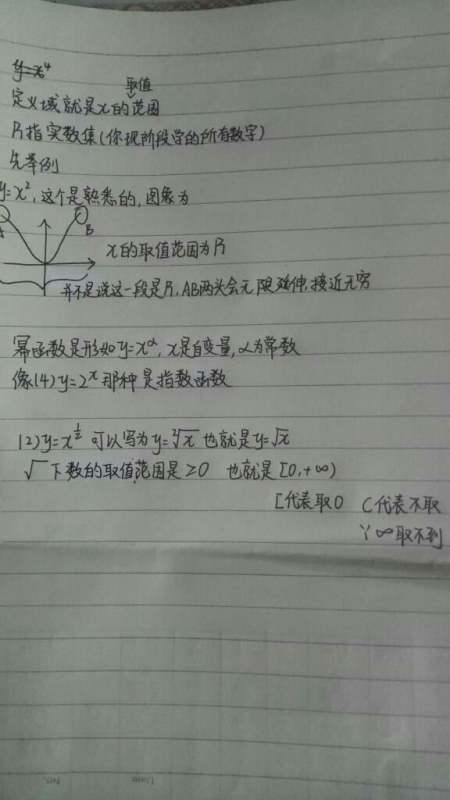 y=x⁴
取值
定义域就是x的范围
R指实数集(你现阶段学的所有数字)
先举例
y=x², 这个是熟悉的, 图象为
A B
x的取值范围为R
并不是说这一段是R, AB两头会无限延伸, 接近无穷
幂函数是形如y=xᵅ, x是自变量, α为常数
像(4)y=2ˣ那种是指数函数
(2)y=x^½ 可以写为y=²√x 也就是y=√x
√下数的取值范围是≥0 也就是[0,+∞)
[代表取0 (代表不取
∵∞取不到